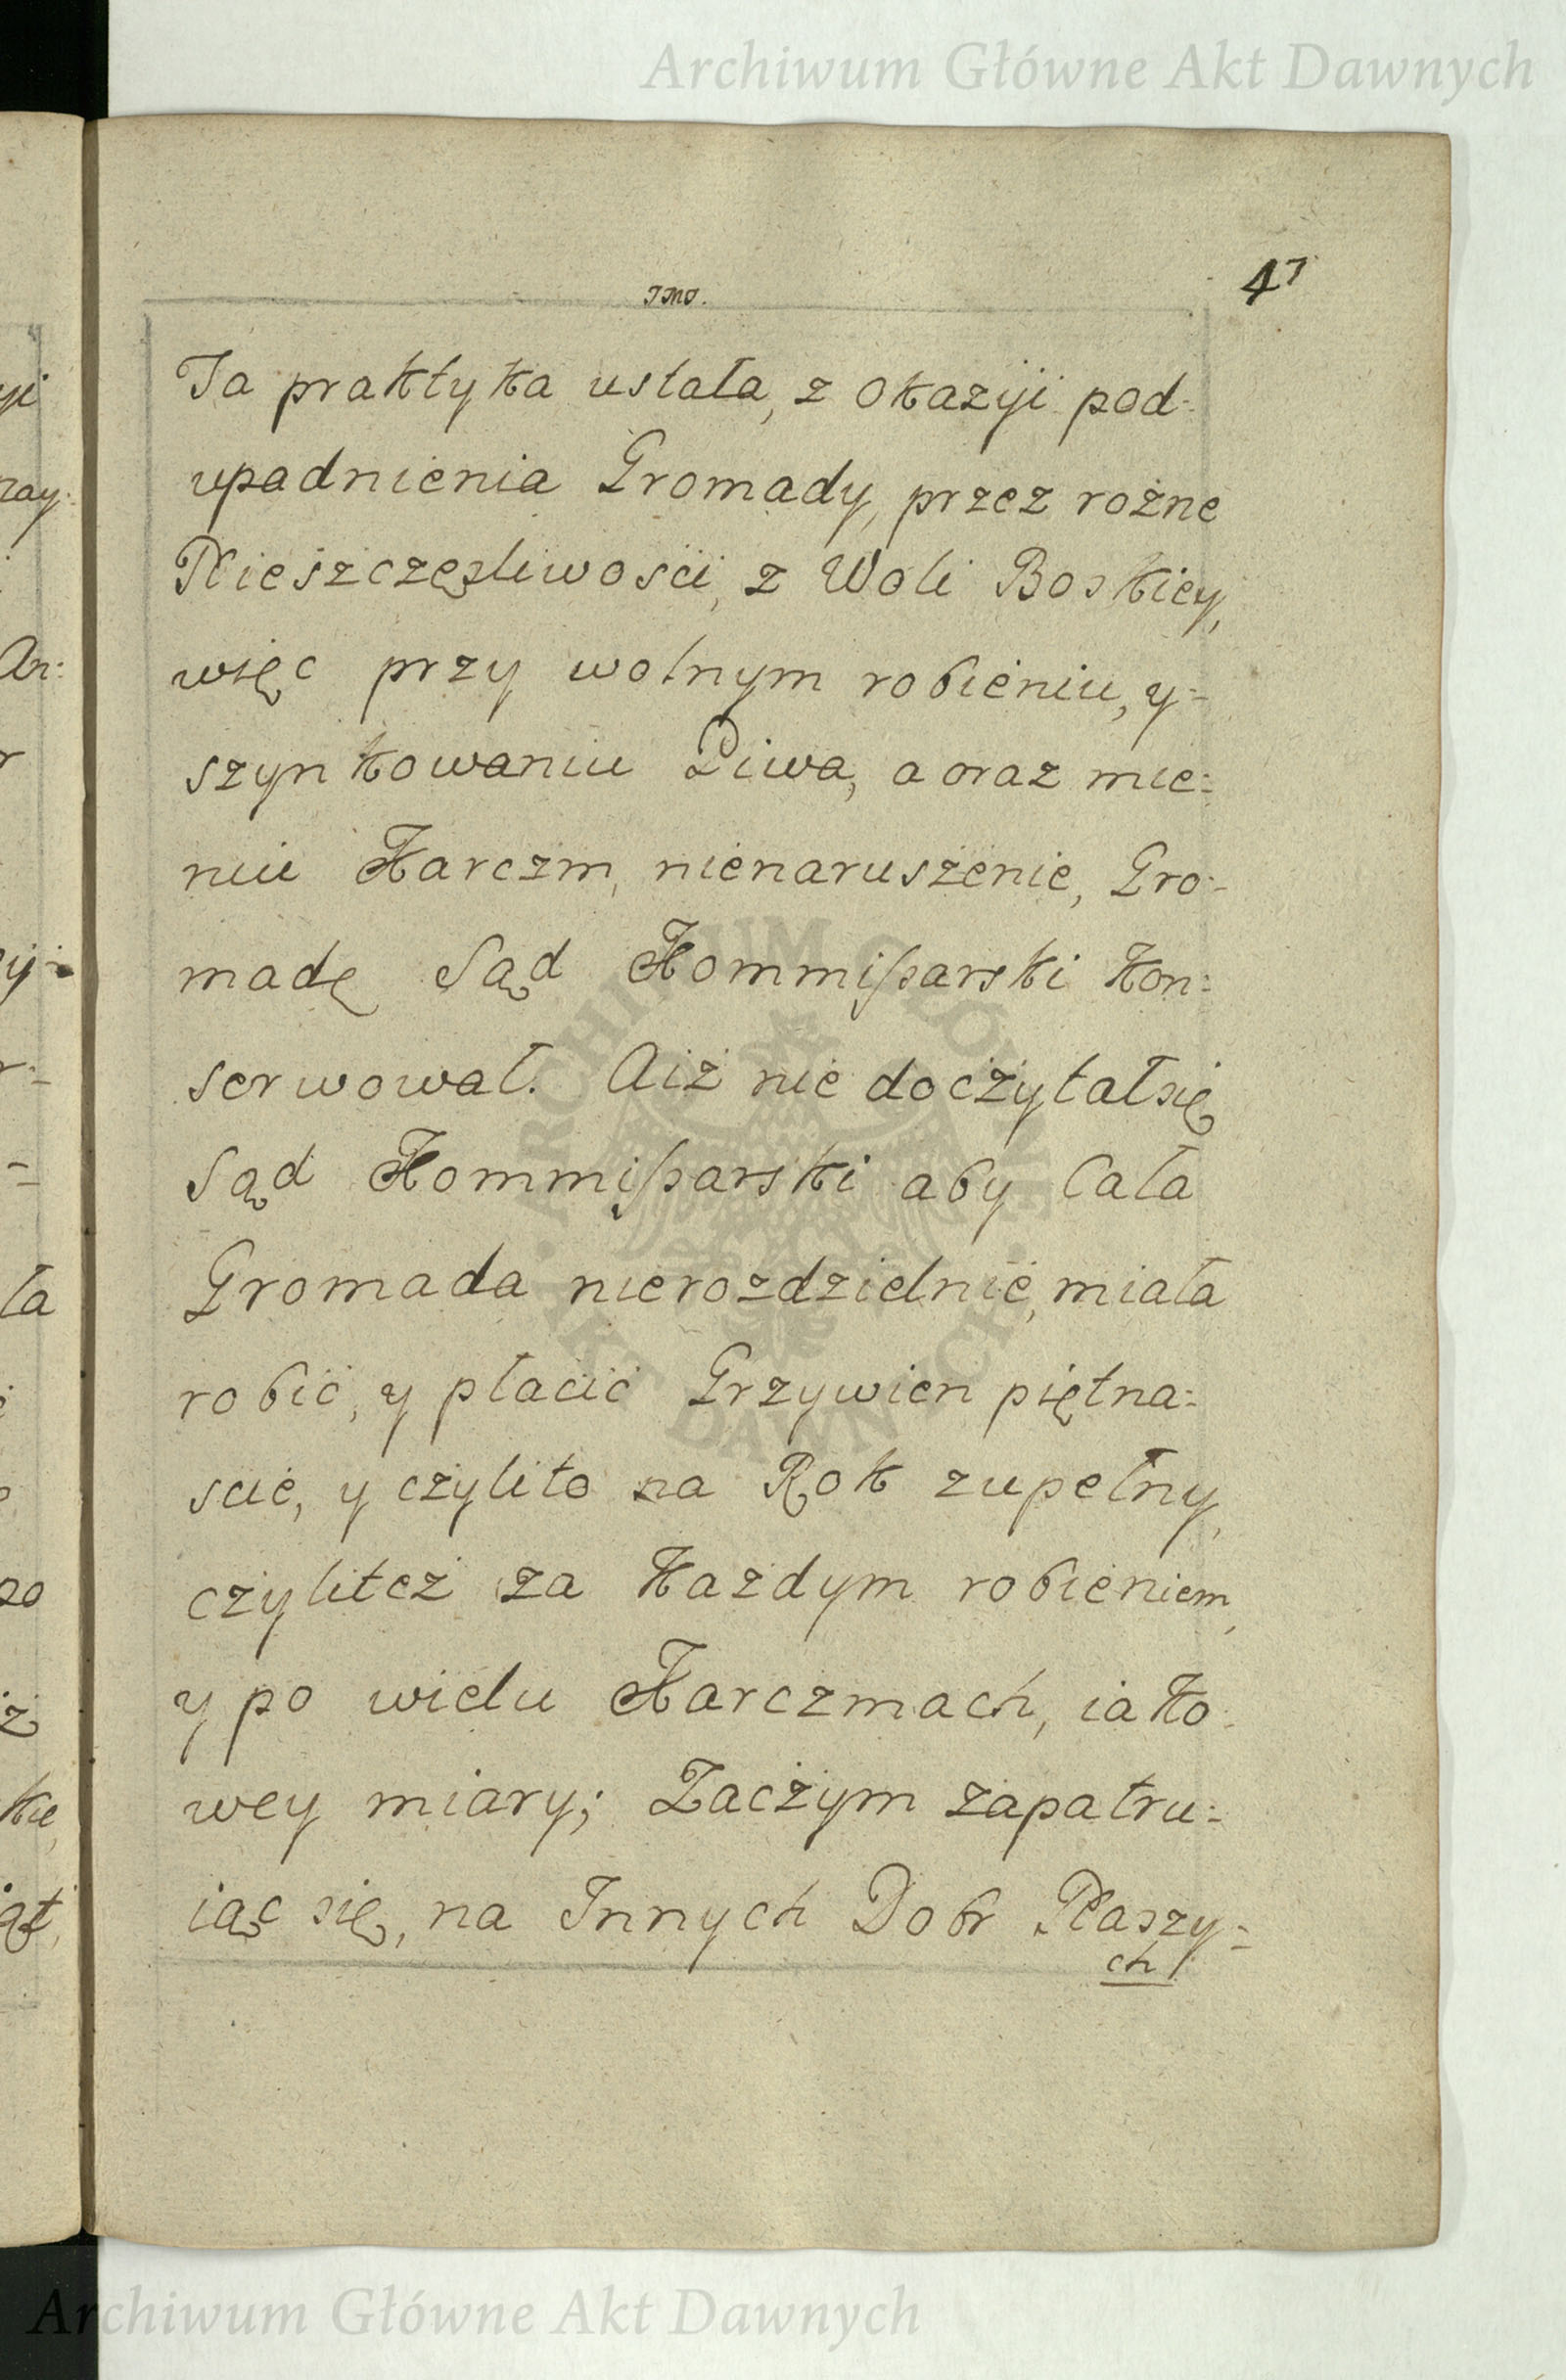 Archiwum Główne Akt Dawnych
47
Jmo.
Ta praktyka ustała, z okazyji pod-
upadnienia Gromady, przez rożne
Nieszczęsliwosci, z Woli Boskiey,
więc przy wolnym robieniu, y-
szynkowaniu Piwa, a oraz mie:
niu Karczm, nienaruszenie, Gro-
madę Sąd Kommißarski kon:
serwował. Aiż nie doczytałsię
Sąd Kommißarski aby Cała
Gromada nierozdzielnie, miała
robić, y płacić Grzywien piętna:
scie, y czylito na Rok zupełny,
czyliteż za każdym robieniem,
y po wielu Karczmach, iako-
wey miary; Zaczym zapatru:
iąc się, na Innych Dobr Naszy-
ch
Archiwum Główne Akt Dawnych